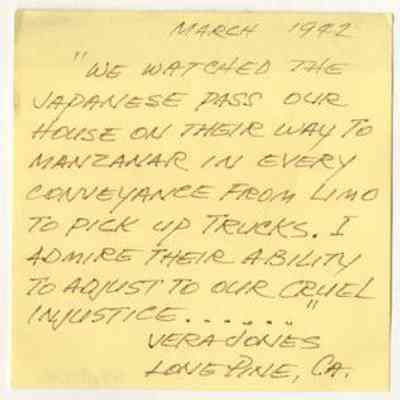 MARCH 1942
"WE WATCHED THE
JAPANESE PASS OUR
HOUSE ON THEIR WAY TO
MANZANAR IN EVERY
CONVEYANCE FROM LIMO
TO PICK UP TRUCKS. I
ADMIRE THEIR ABILITY
TO ADJUST TO OUR CRUEL
INJUSTICE......."
VERA JONES
LONE PINE, CA.